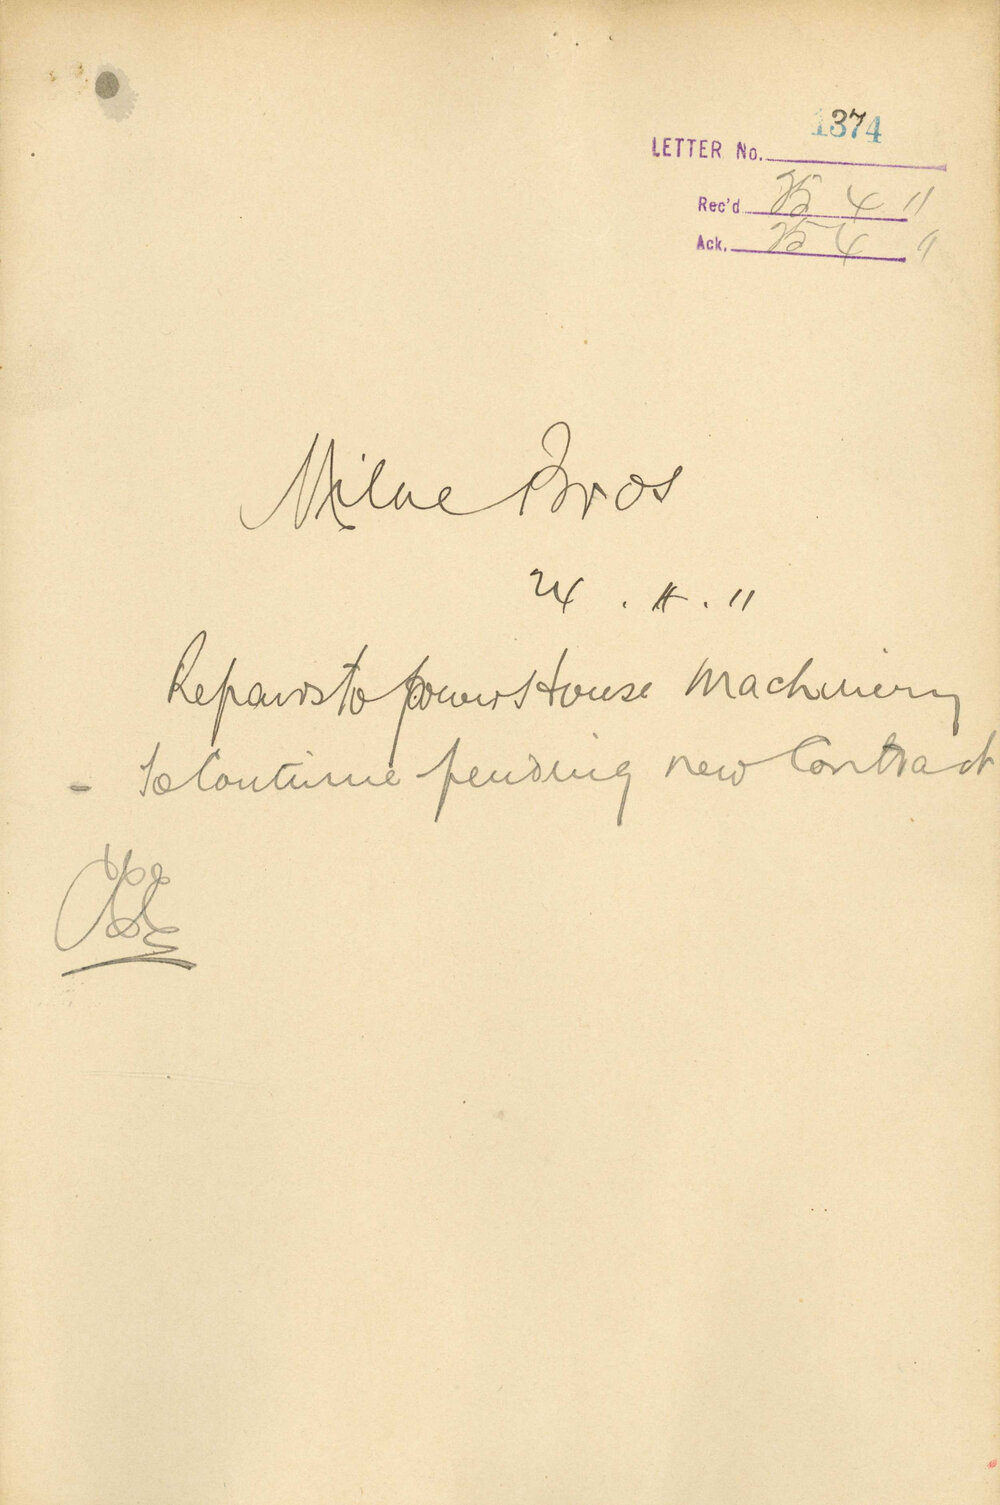 1374
LETTER No.
Rec'd 25 4 11
Ack. 25 4 11
Milne Bros
24 . 4 . 11
Repairs to power House Machinery
- To Continue pending new Contract